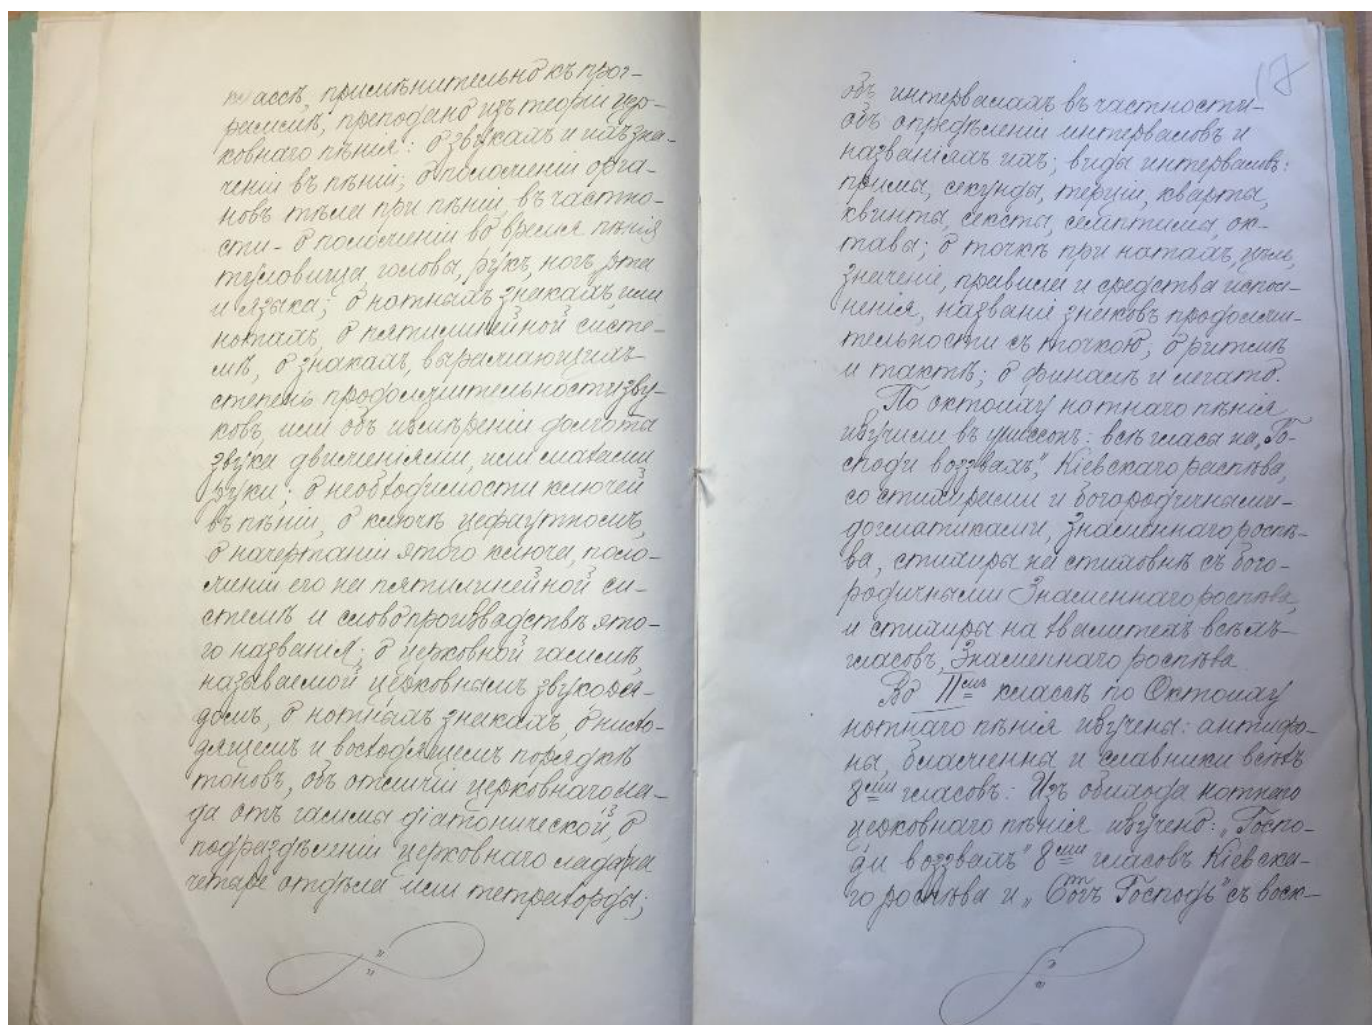 классѣ, примѣнительно къ прог-
раммѣ, преподано изъ теоріи цер-
ковнаго пѣнія: о звукахъ и ихъ зна-
ченіи въ пѣніи; о положеніи орга-
новъ тѣла при пѣніи, въ частно-
сти - о положеніи во время пѣнія
туловища, головы, рукъ, ногъ, рта
и языка; о нотныхъ знакахъ, или
нотахъ, о пятилинейной систе-
мѣ, о знакахъ, выражающихъ
степень продолжительности зву-
ковъ, или объ измѣреніи долготы
звука движеніями, или махами
руки; о необходимости ключей
въ пѣніи, о ключѣ цефаутномъ,
о начертаніи этого ключа, поло-
женіи его на пятилинейной си-
стемѣ и словопроизводствѣ это-
го названія; о церковной гаммѣ,
называемой церковнымъ звукоря-
домъ, о нотныхъ знакахъ, о нисхо-
дящемъ и восходящемъ порядкѣ
тоновъ, объ отличіи церковнаго ла-
да отъ гаммы діатонической, о
подраздѣленіи церковнаго лада на
четыре отдѣла или тетрахорды;
17
объ интервалахъ въ частности-
объ опредѣленіи интерваловъ и
названіяхъ ихъ; виды интерваловъ:
прима, секунды, терціи, кварта,
квинта, секста, септима, ок-
тава; о точкѣ при нотахъ, цѣль,
значеніе, правила и средства испол-
ненія, названіе знаковъ продолжи-
тельности съ точкою; о ритмѣ
и тактѣ; о финалѣ и легато.
По октоиху нотнаго пѣнія
изучили въ униссонъ: всѣ гласы на „Го-
споди воззвахъ", Кіевскаго распѣва,
со стихирами и богородичными-
догматиками, Знаменнаго роспѣ-
ва, стихиры на стиховнѣ съ бого-
родичными Знаменнаго роспѣва,
и стихиры на хвалитехъ всѣхъ
гласовъ, Знаменнаго роспѣва.
Во IIмъ классѣ по Октоиху
нотнаго пѣнія изучены: антифо-
ны, блаженна и славники всѣхъ
8ми гласовъ: Изъ обихода нотнаго
церковнаго пѣнія изучено: „Госпо-
ди воззвахъ" 8ми гласовъ Кіевска-
го роспѣва и „Богъ Господь" съ воск-